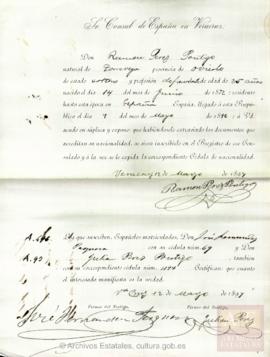 Sr. Consul de España en Veracruz.
Don Ramon Perez Pontigo
natural de provincia de Oviedo
de estado soltero y profesion de edad de 25 años
nacido el dia 14 del mes de Junio de 1872 : residente
hasta esta época en España, llegado á esta Repú-
blica el del mes de Mayo de á Vd.
acude en súplica y expone que habiéndose extraviado los documentos que
acreditan su nacionalidad, se sirva inscribirle en el Registro de ese Con-
sulado y á la vez se le expida la correspondiente Cédula de nacionalidad.
Veracruz de Mayo de 1897
Ramon Perez Pontigo
Los que suscriben, Españoles matriculados, Don José
con su cédula núm. 69 y Don
Julian tambien
con su correspondiente cédula núm. Certifican: que cuanto
el interesado manifiesta es la verdad.
12 de Mayo de 1897
Firma del Testigo, Firma del Testigo,
José Julian
© Archivos Estatales, cultura.gob.es